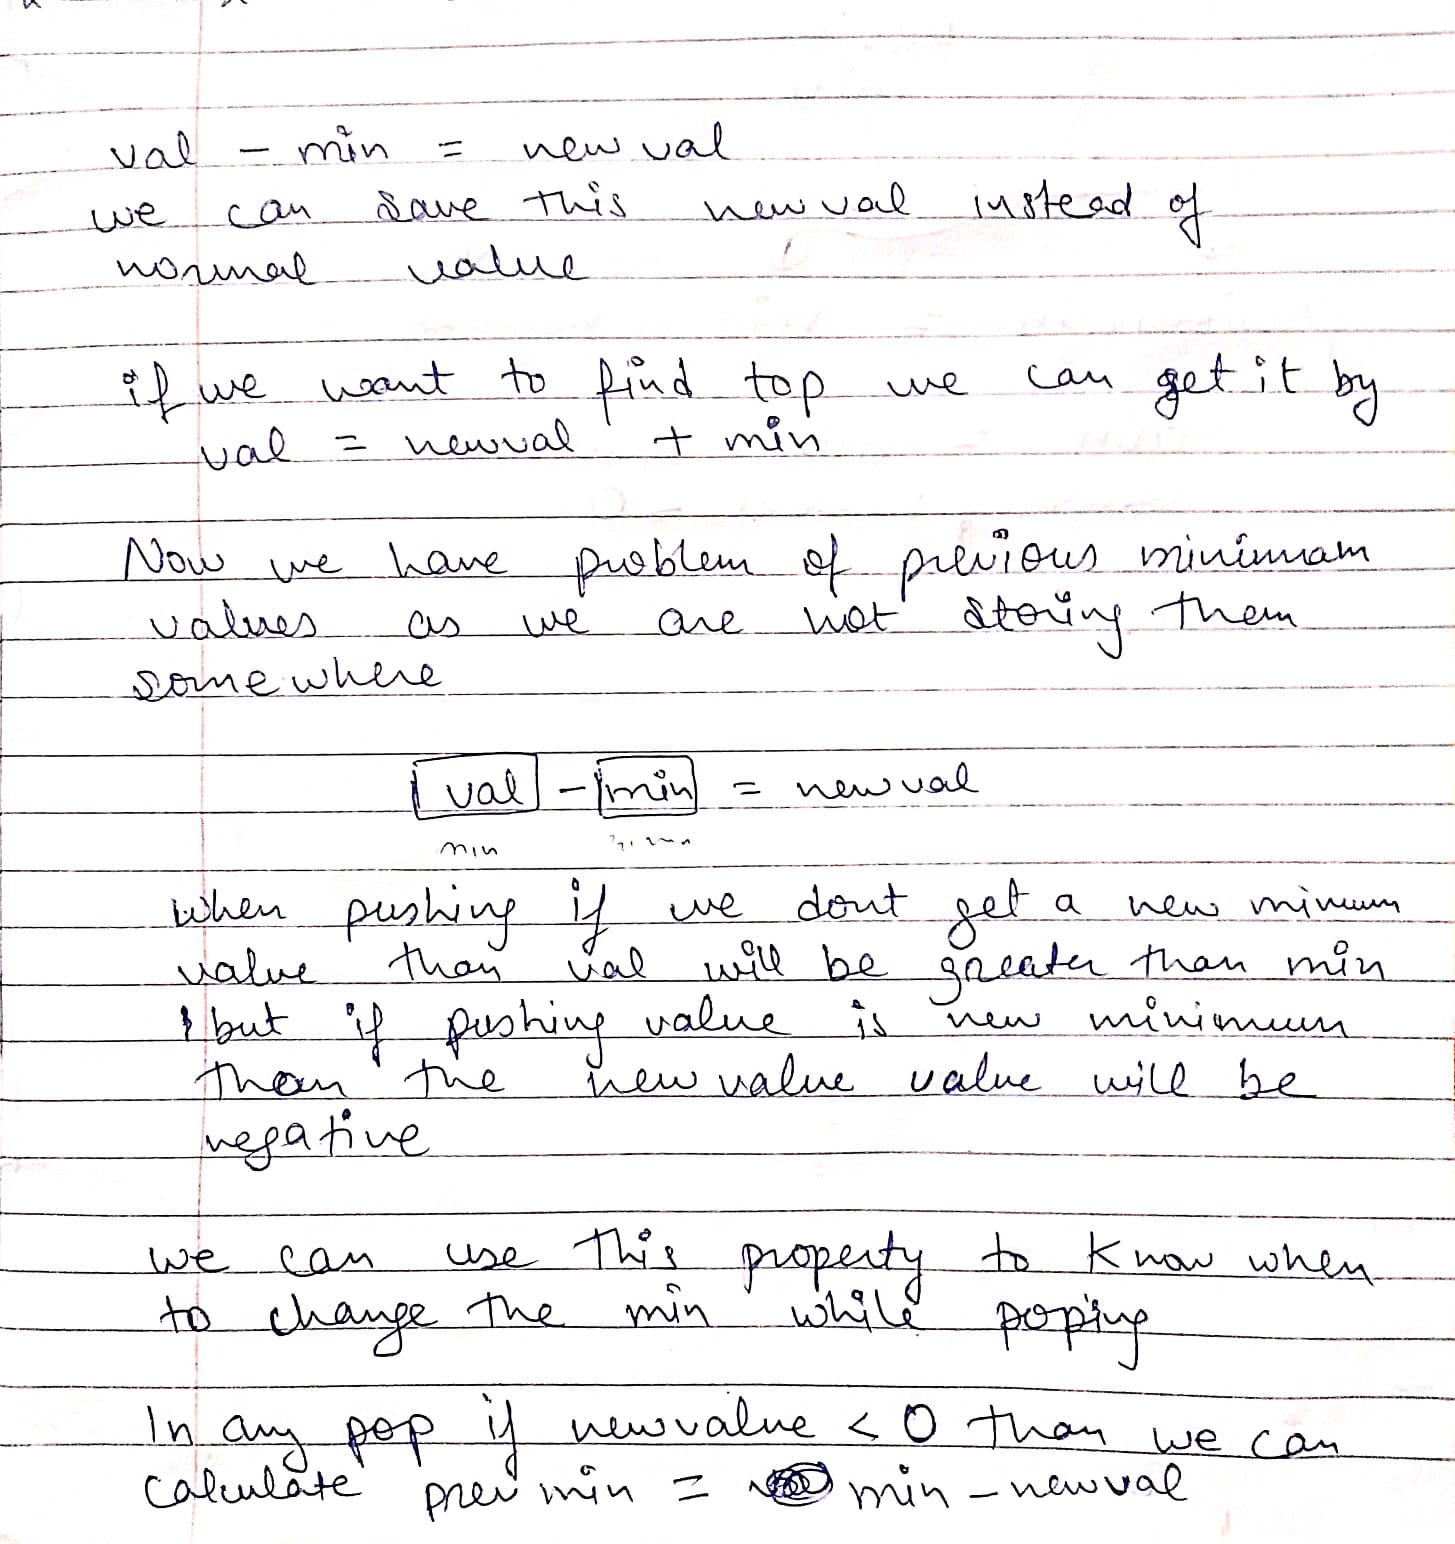 val - min = new val
we can save this new val instead of
normal value
if we want to find top we can get it by
val = newval + min
Now we have problem of previous minimam
values as we are not storing them
somewhere
val - min = new val
min
when pushing if we dont get a new minimum
value than val will be greater than min
but if pushing value is new minimum
than the new value value will be
negative
we can use this property to know when
to change the min while poping
In any pop if newvalue < 0 than we can
calculate prev min = min - newval